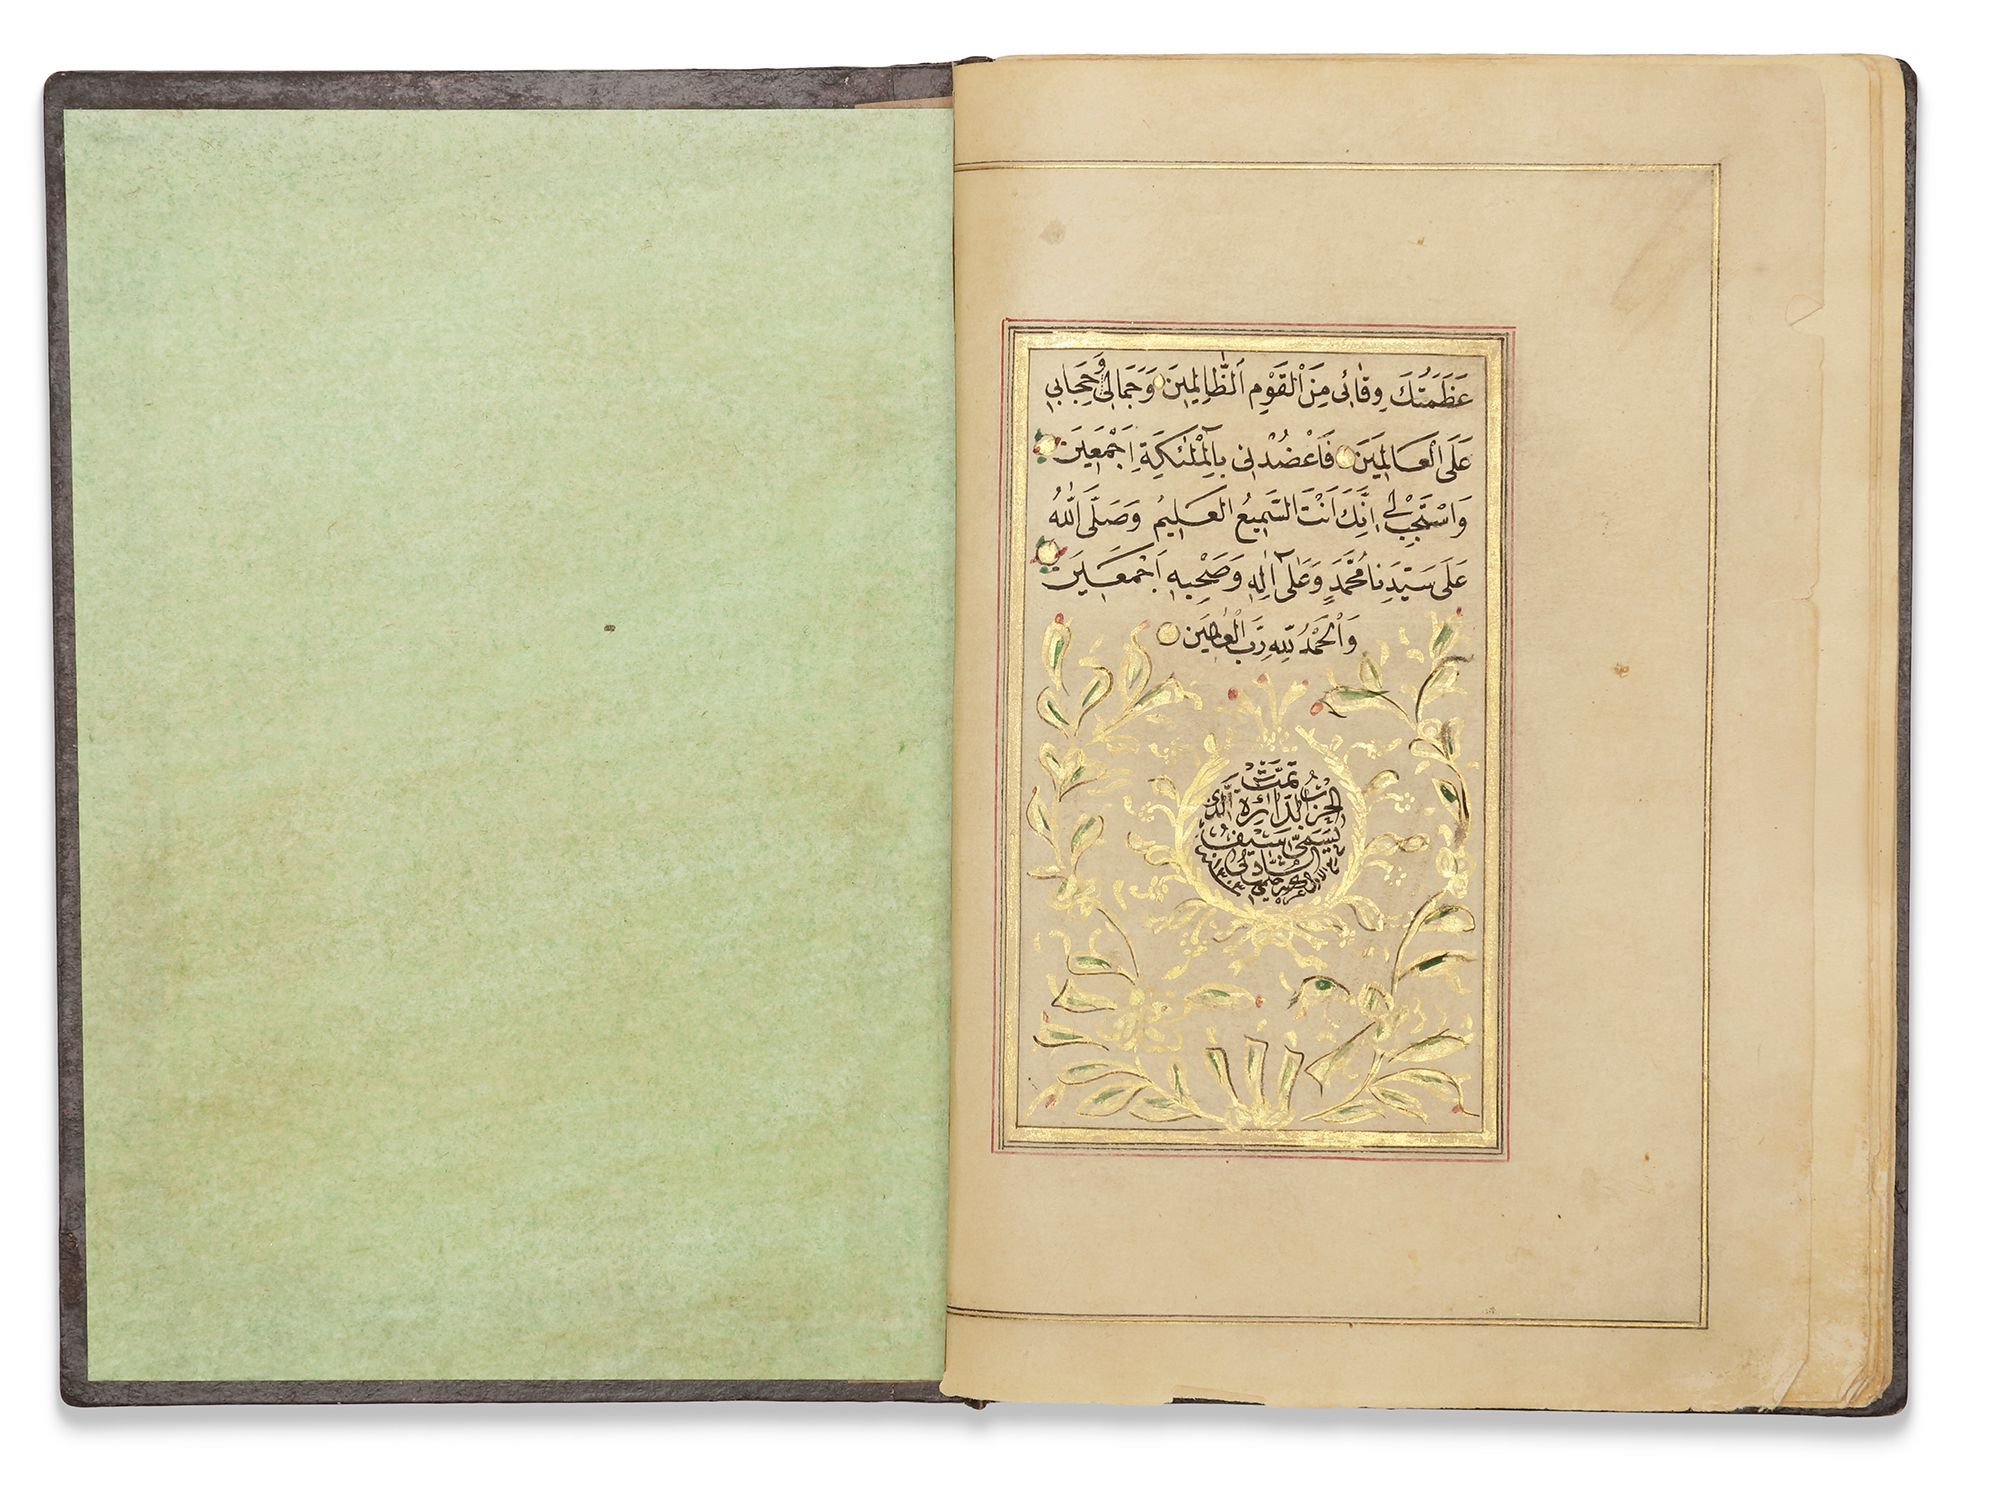 عَظَمَتُكَ وِقَائِى مِنَ الْقَوْمِ الظَّالِمِينَ وَجَمَالِى وَحِجَابِى
عَلَى الْعَالَمِينَ فَاعْضُدْنِى بِالْمَلٰئِكَةِ اَجْمَعِينَ
وَاسْتَجِبْ لِى اِنَّكَ اَنْتَ السَّمِيعُ الْعَلِيمُ وَصَلَّى اللّٰهُ
عَلَى سَيِّدِنَا مُحَمَّدٍ وَعَلَى اٰلِهِ وَصَحْبِهِ اَجْمَعِينَ
وَالْحَمْدُ لِلّٰهِ رَبِّ الْعَالَمِينَ
تمت
الحزب الدائره الذى
يسمى سيف
الشاذلى